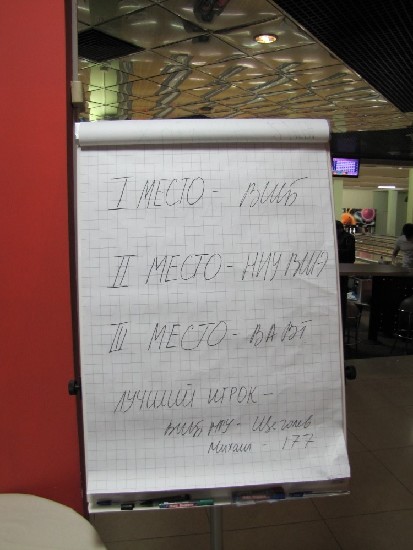 I МЕСТО - ВШБ
II МЕСТО - НИУ ВШЭ
III МЕСТО - ВАВТ
ЛУЧШИЙ ИГРОК -
ВШБ МГУ -
Михаил - 177